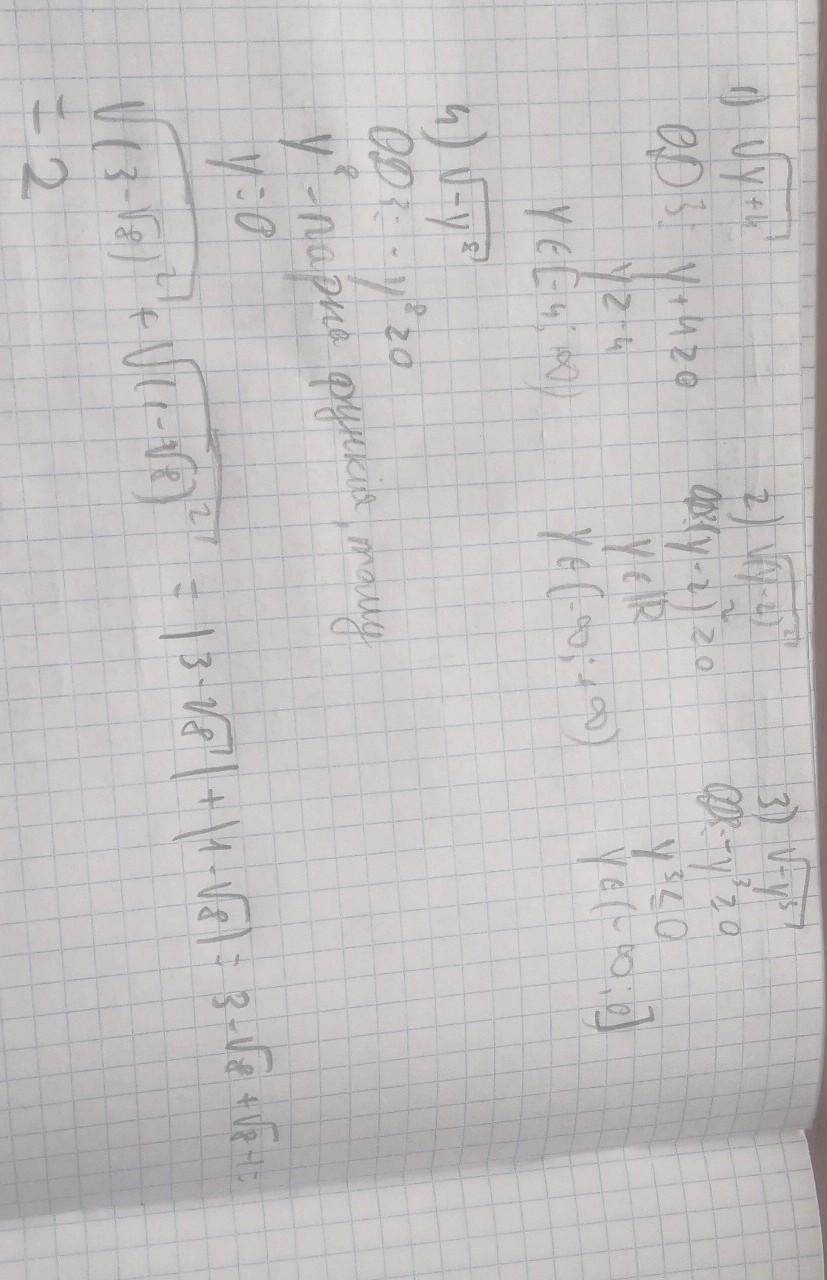 1) √(y+4)
ОДЗ: y+4≥0
y≥-4
y∈[-4;+∞)
2) √(y-2)²
ОДЗ: (y-2)²≥0
y∈R
y∈(-∞;+∞)
3) √-y³
ОДЗ: -y³≥0
y³≤0
y∈(-∞;0]
4) √-y⁸
ОДЗ: -y⁸≥0
y⁸-парна функція, тому
y=0
√(3-√8)² + √(1-√8)² = |3-√8|+|1-√8|= 3-√8+√8-1=
= 2